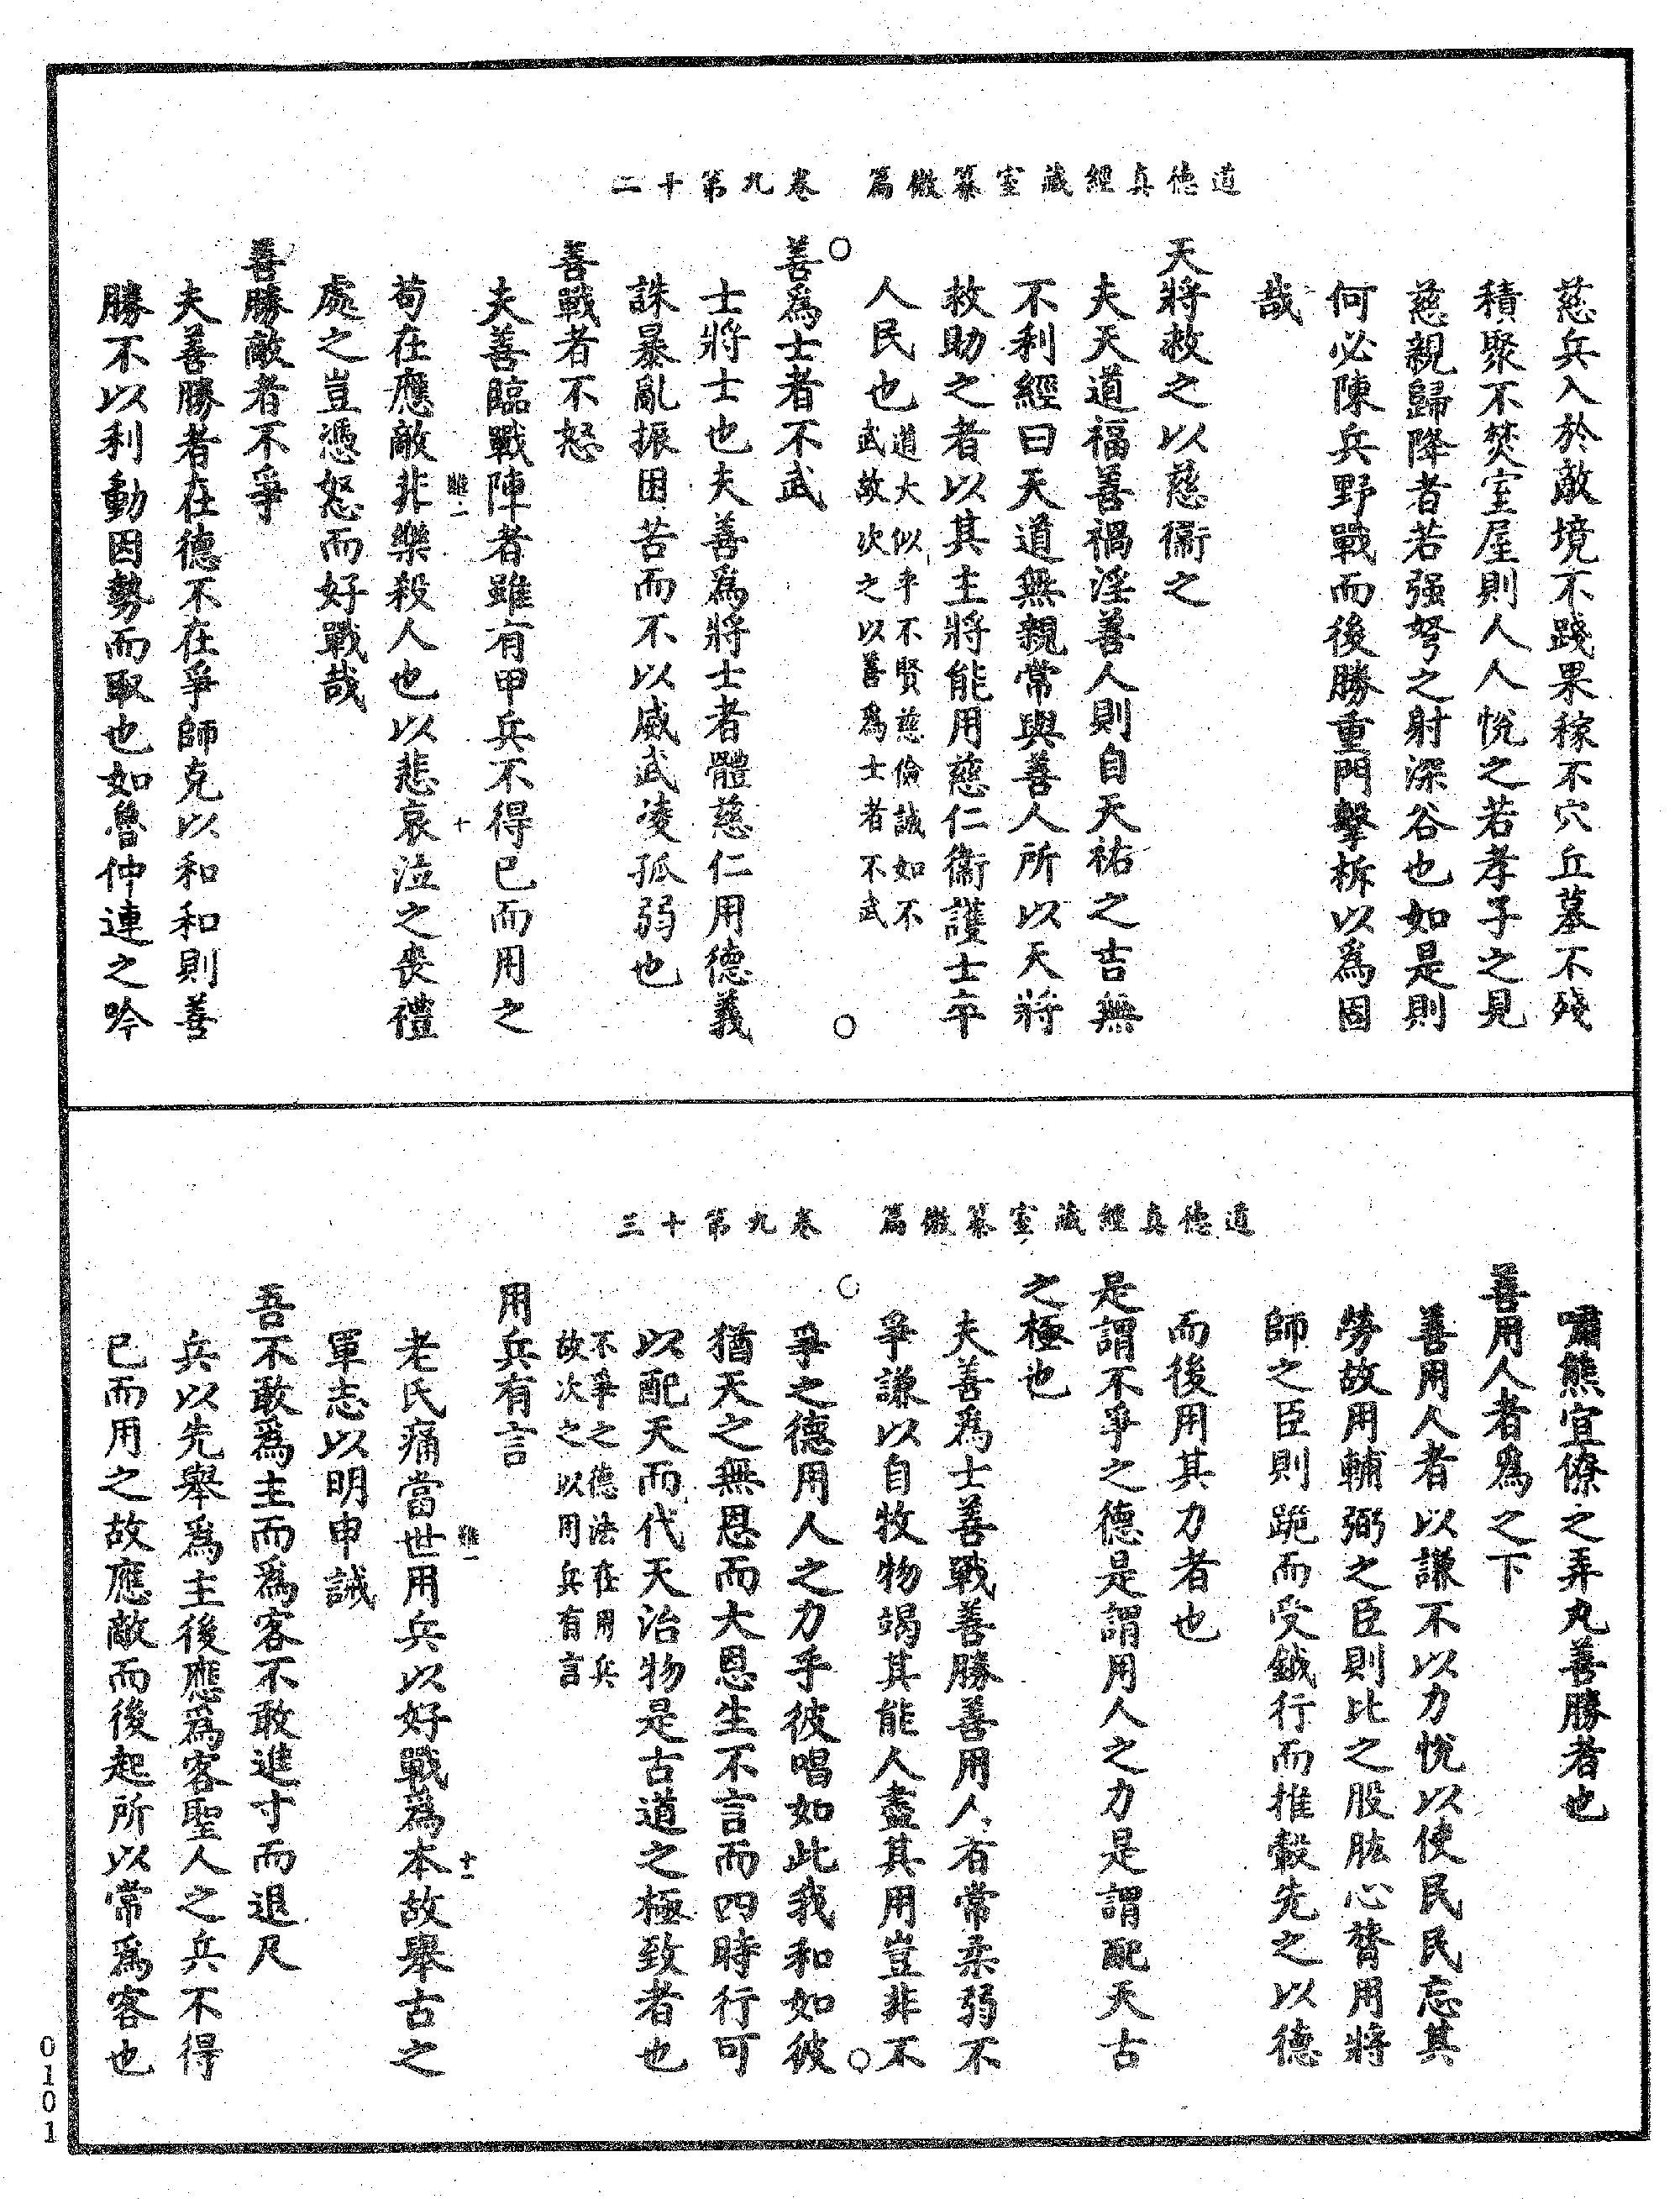 道德真經藏室纂微篇　卷九第十二
慈兵入於敵境不踐果稼不穴丘墓不殘
積聚不焚室屋則人人悅之若孝子之見
慈親歸降者若强弩之射深谷也如是則
何必陳兵野戰而後勝重門擊柝以為固
哉
天將救之以慈衞之
夫天道福善禍淫善人則自天祐之吉無
不利經曰天道無親常與善人所以天將
救助之者以其主將能用慈仁衞護士卒
人民也道大似乎不賢慈儉誠如不
武故次之以善為士者不武
○　○
善為士者不武
士將士也夫善為將士者體慈仁用德義
誅暴亂振困苦而不以威武凌孤弱也
善戰者不怒
夫善臨戰陣者雖有甲兵不得已而用之
難一　十
苟在應敵非樂殺人也以悲哀泣之喪禮
處之豈憑怒而好戰哉
善勝敵者不爭
夫善勝者在德不在爭師克以和和則善
勝不以利動因勢而取也如魯仲連之吟
道德真經藏室纂微篇　卷九第十三
嘯熊宜僚之弄丸善勝者也
善用人者為之下
善用人者以謙不以力悅以使民民忘其
勞故用輔弼之臣則比之股肱心膂用將
師之臣則跪而受鉞行而推轂先之以德
而後用其力者也
是謂不爭之德是謂用人之力是謂配天古
之極也
夫善為士善戰善勝善用人者常柔弱不
爭謙以自牧物竭其能人盡其用豈非不
○　○
爭之德用人之力乎彼唱如此我和如彼
猶天之無恩而大恩生不言而四時行可
以配天而代天治物是古道之極致者也
不爭之德法在用兵
故次之以用兵有言
用兵有言
難一　十一
老氏痛當世用兵以好戰為本故舉古之
軍志以明申誡
吾不敢為主而為客不敢進寸而退尺
兵以先舉為主後應為客聖人之兵不得
已而用之故應敵而後起所以常為客也
0101